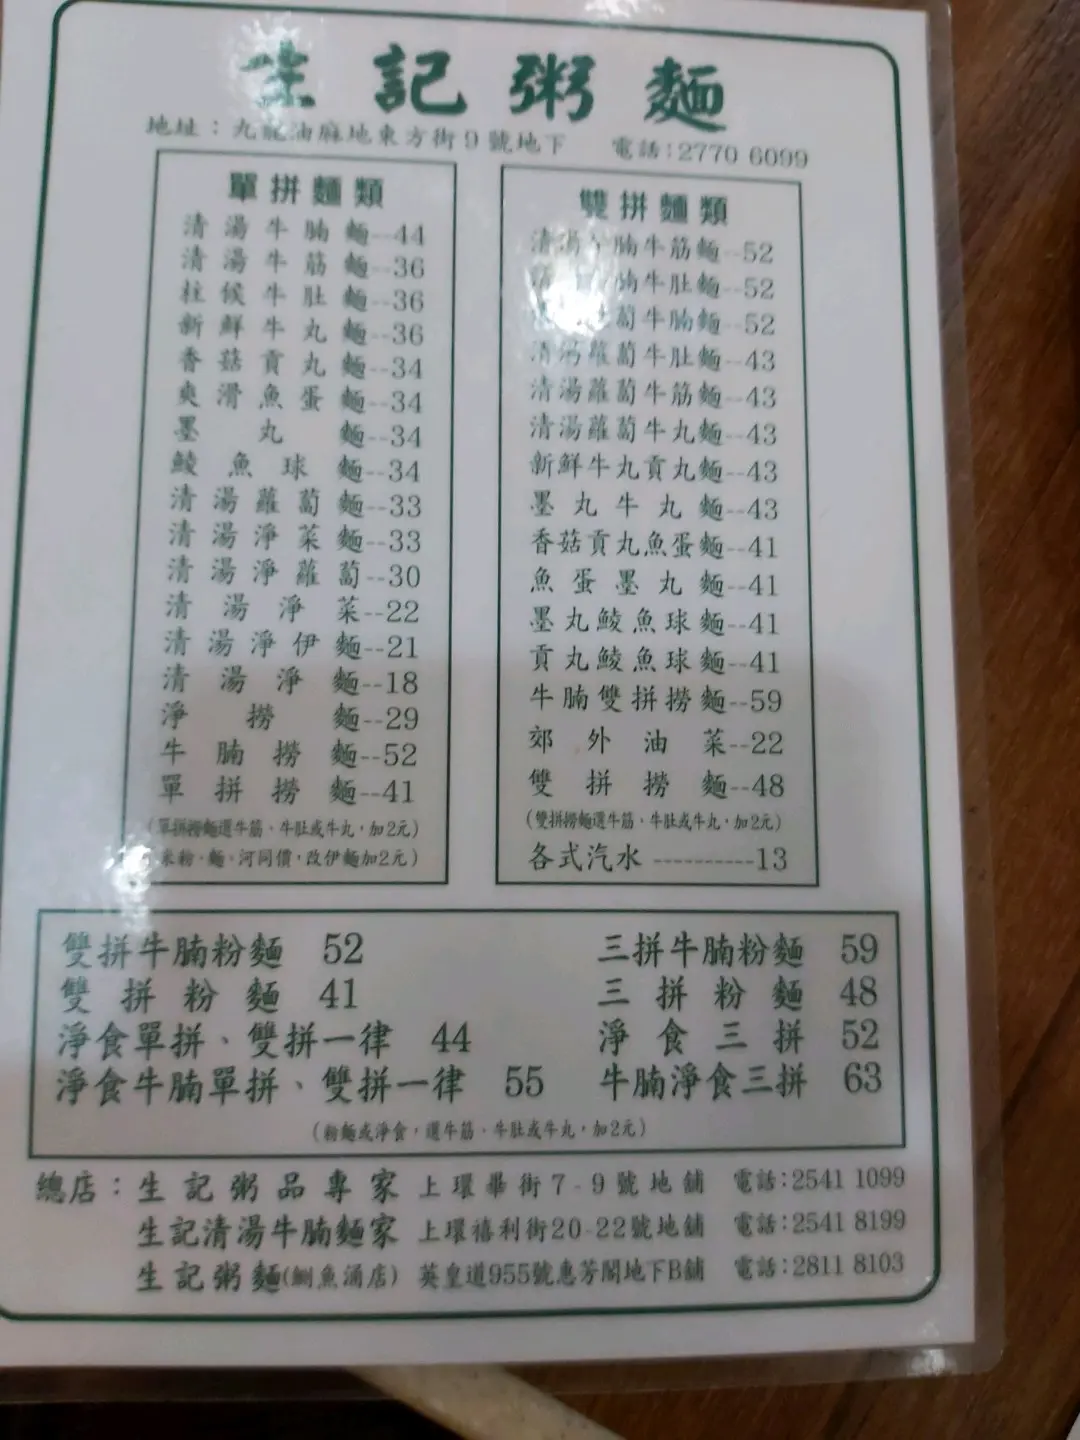 生記粥麵
地址：九龍油麻地東方街9號地下 電話:2770 6099
單拼麵類
清湯牛腩麵--44
清湯牛筋麵--36
柱候牛肚麵--36
新鮮牛丸麵--36
香菇貢丸麵--34
爽滑魚蛋麵--34
墨丸麵--34
鯪魚球麵--34
清湯蘿蔔麵--33
清湯淨菜麵--33
清湯淨蘿蔔--30
清湯淨菜--22
清湯淨伊麵--21
清湯淨麵--18
淨撈麵--29
牛腩撈麵--52
單拼撈麵--41
(單拼撈麵選牛筋、牛肚或牛丸，加2元)
米粉、麵、河同價，改伊麵加2元)
雙拼麵類
清湯牛腩牛筋麵--52
腩牛肚麵--52
蔔牛腩麵--52
清湯蘿蔔牛肚麵--43
清湯蘿蔔牛筋麵--43
清湯蘿蔔牛丸麵--43
新鮮牛丸貢丸麵--43
墨丸牛丸麵--43
香菇貢丸魚蛋麵--41
魚蛋墨丸麵--41
墨丸鯪魚球麵--41
貢丸鯪魚球麵--41
牛腩雙拼撈麵--59
郊外油菜--22
雙拼撈麵--48
(雙拼撈麵選牛筋、牛肚或牛丸，加2元)
各式汽水 ----------13
雙拼牛腩粉麵 52 三拼牛腩粉麵 59
雙拼粉麵 41 三拼粉麵 48
淨食單拼、雙拼一律 44 淨食三拼 52
淨食牛腩單拼、雙拼一律 55 牛腩淨食三拼 63
(粉麵或淨食，選牛筋、牛肚或牛丸，加2元)
總店：生記粥品專家 上環畢街7-9號地舖 電話:2541 1099
生記清湯牛腩麵家 上環禧利街20-22號地舖 電話:2541 8199
生記粥麵(鰂魚涌店) 英皇道955號惠芳閣地下B舖 電話:2811 8103